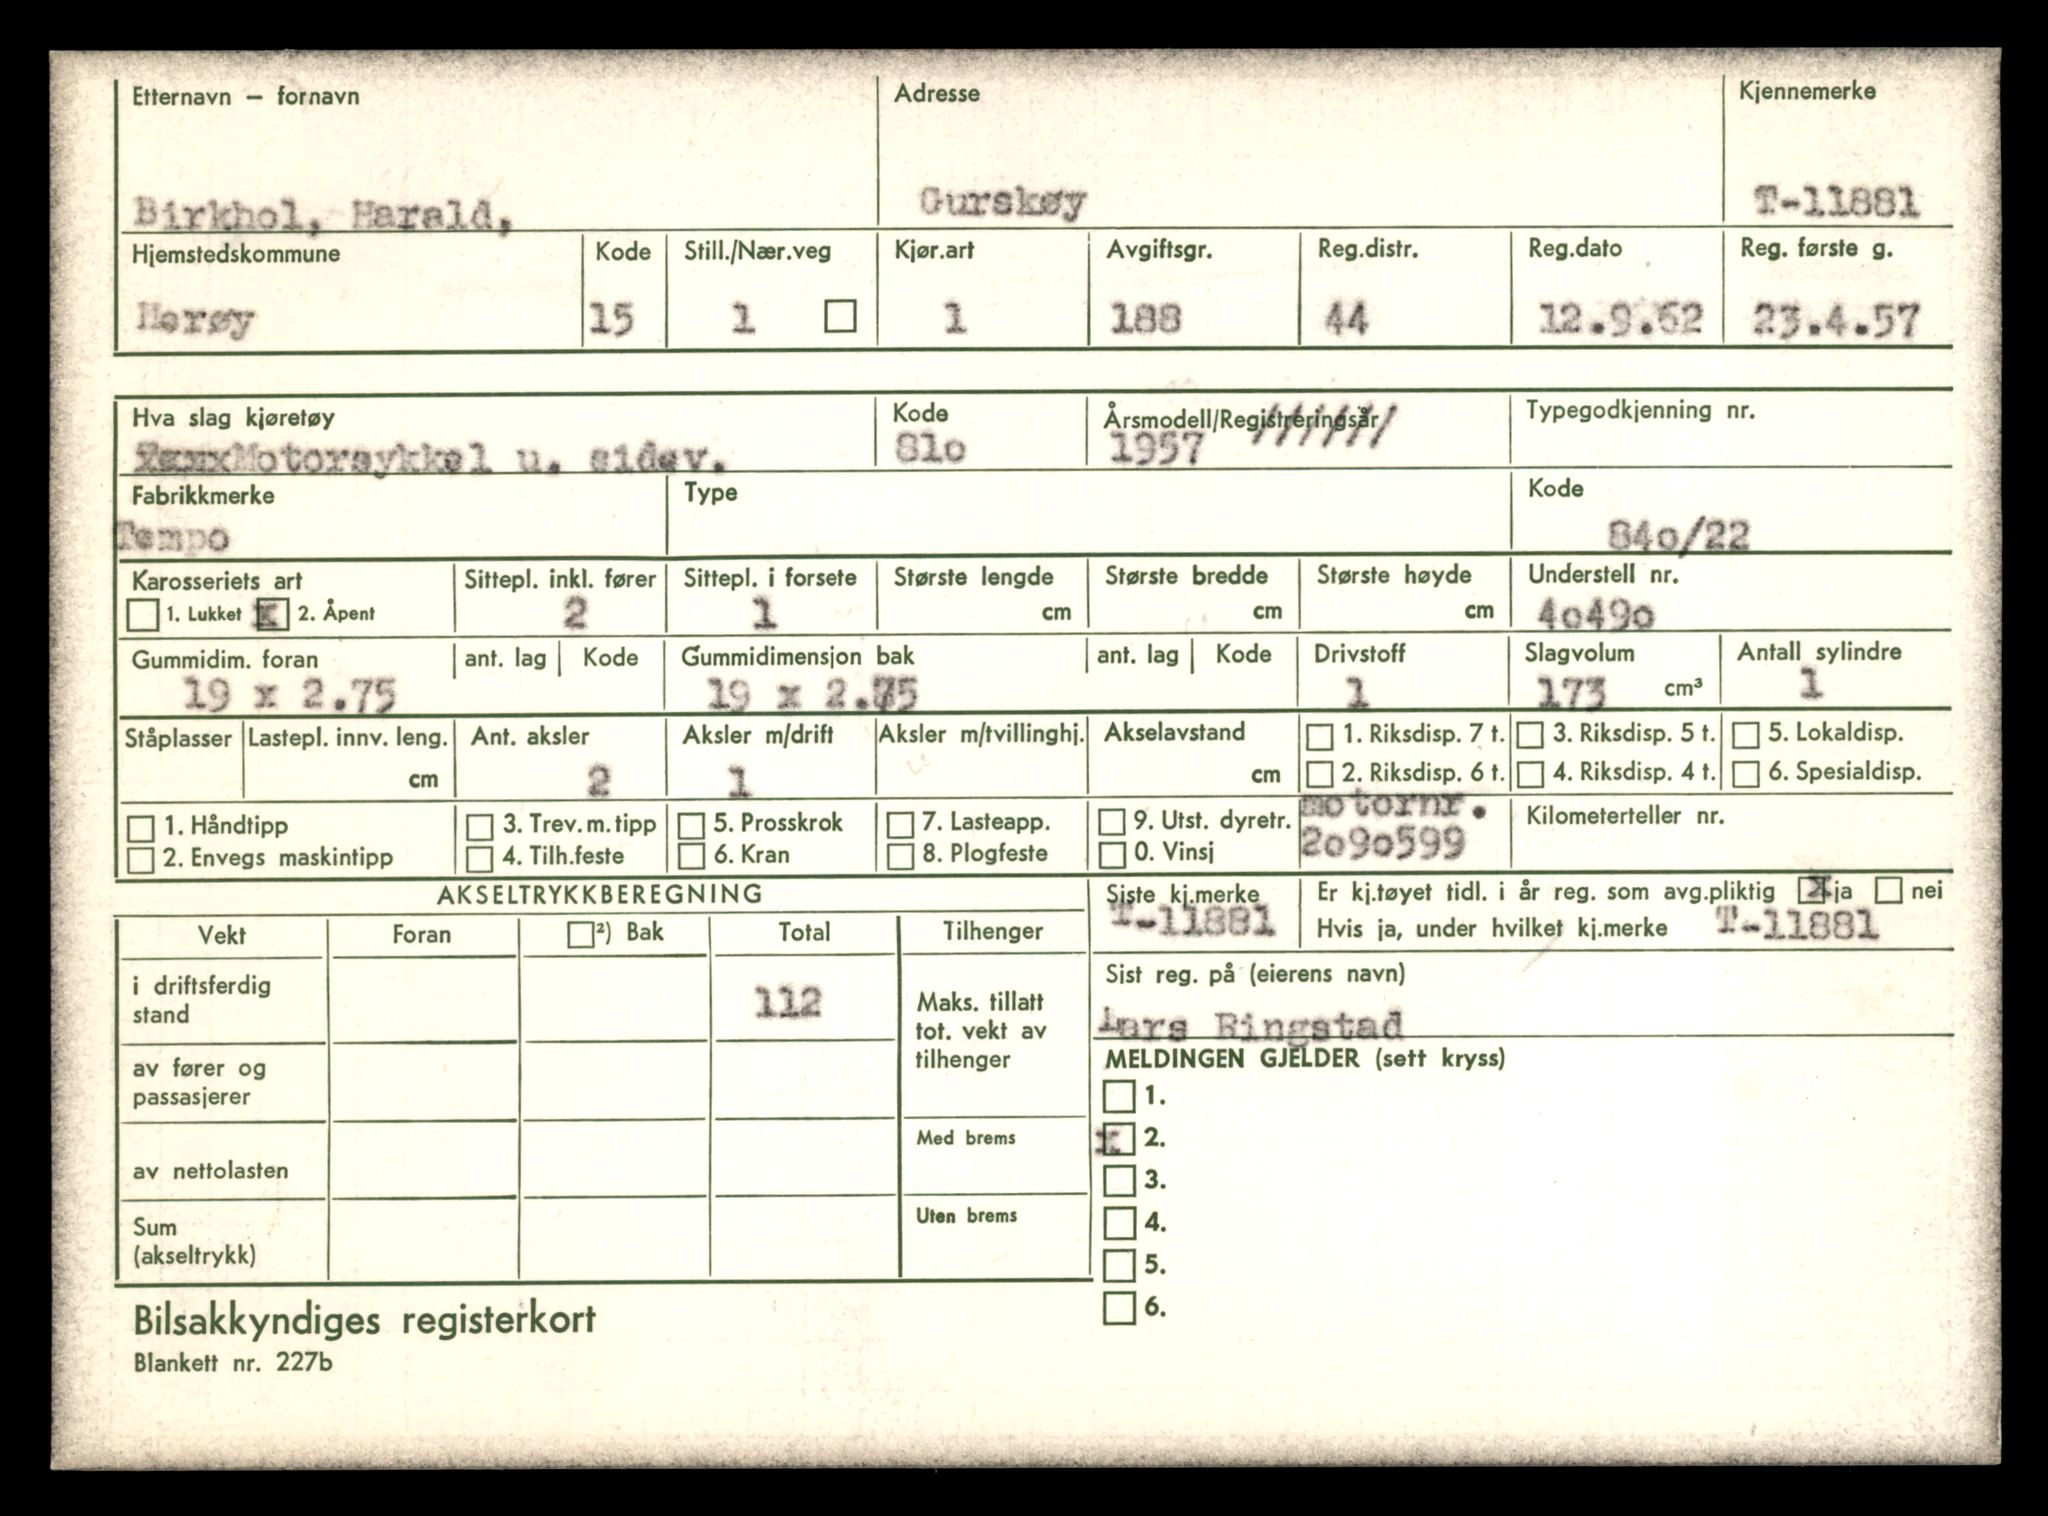 Etternavn – fornavn Adresse Kjennemerke
Birkhol, Harald, Gurskøy T-11881
Hjemstedskommune Kode Still./Nær.veg Kjør.art Avgiftsgr. Reg.distr. Reg.dato Reg. første g.
Herøy 15 1 1 188 44 12.9.62 23.4.57
Hva slag kjøretøy Kode Årsmodell/Registreringsår Typegodkjenning nr.
Motorsykkel u. sidev. 81o 1957 //////
Fabrikkmerke Type Kode
Tempo 84o/22
Karosseriets art Sittepl. inkl. fører Sittepl. i forsete Største lengde Største bredde Største høyde Understell nr.
1. Lukket x 2. Åpent 2 1 cm cm cm 4o49o
Gummidim. foran ant. lag Kode Gummidimensjon bak ant. lag Kode Drivstoff Slagvolum Antall sylindre
19 x 2.75 19 x 2.75 1 173 cm³ 1
Ståplasser Lastepl. innv. leng. Ant. aksler Aksler m/drift Aksler m/tvillinghj. Akselavstand 1. Riksdisp. 7 t. 3. Riksdisp. 5 t. 5. Lokaldisp.
cm 2 1 cm 2. Riksdisp. 6 t. 4. Riksdisp. 4 t. 6. Spesialdisp.
1. Håndtipp 3. Trev. m. tipp 5. Prosskrok 7. Lasteapp. 9. Utst. dyretr. motornr. Kilometerteller nr.
2. Envegs maskintipp 4. Tilh.feste 6. Kran 8. Plogfeste 0. Vinsj 2o9o599
AKSELTRYKKBEREGNING Siste kj.merke Er kj.tøyet tidl. i år reg. som avg.pliktig x ja nei
T-11881 Hvis ja, under hvilket kj.merke T-11881
Vekt Foran ²) Bak Total Tilhenger
Sist reg. på (eierens navn)
i driftsferdig stand 112 Maks. tillatt tot. vekt av tilhenger
Lars Ringstad
MELDINGEN GJELDER (sett kryss)
av fører og passasjerer
1.
Med brems x 2.
av nettolasten 3.
Uten brems 4.
Sum (akseltrykk)
5.
6.
Bilsakkyndiges registerkort
Blankett nr. 227b